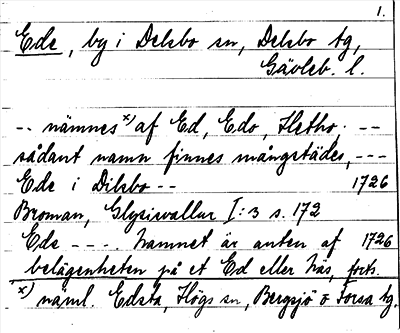 1.
Ede, by i Delsbo sn, Delsbo tg,
Gävleb. l.
-- nämnes x) af Ed, Edo, Hetho, --
sådant namn finnes mångstädes, ---
Ede i Dilsbo -- 1726
Broman, Glysisvallur I:3 s. 172
Ede ---. Namnet är anten af 1726
belägenheten på et Ed eller Näs, forts.
x) näml. Edsta, Högs sn, Bergsjö o Forsa tg.